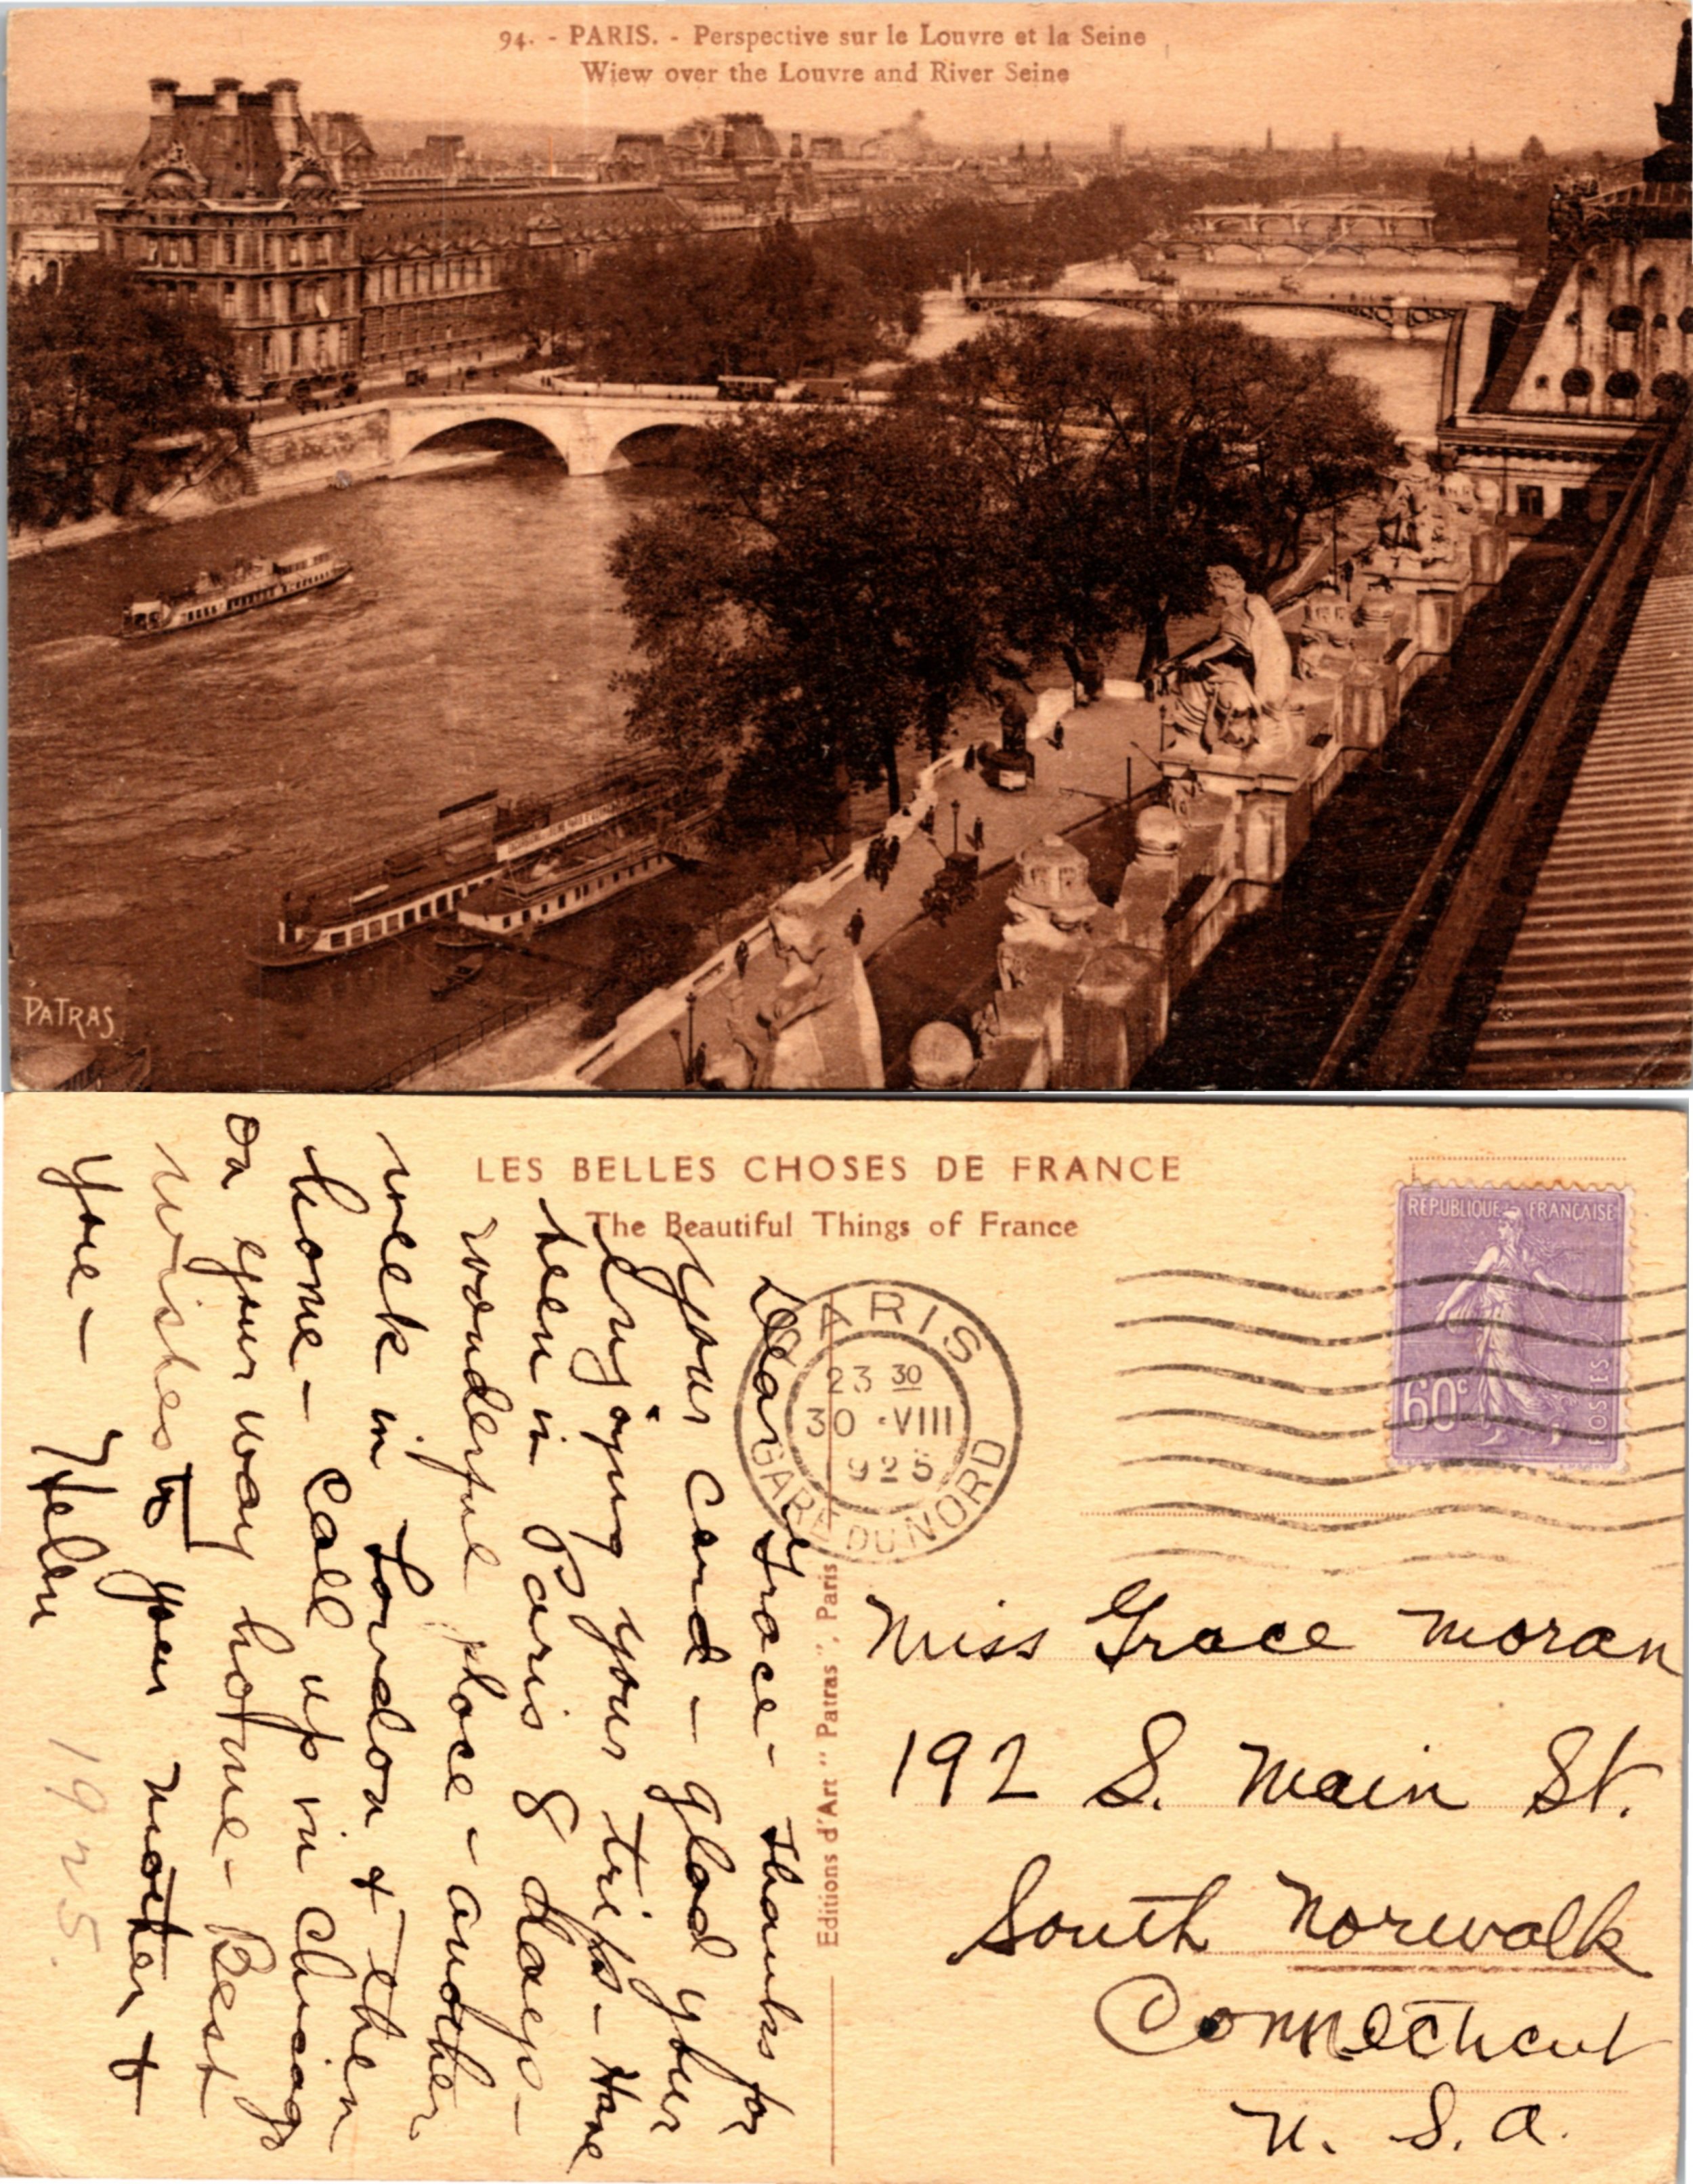 94. - PARIS. - Perspective sur le Louvre et la Seine
Wiew over the Louvre and River Seine
PATRAS
LES BELLES CHOSES DE FRANCE
The Beautiful Things of France
REPUBLIQUE FRANÇAISE
60c
POSTES
PARIS
23 30
30 · VIII
925
GARE DU NORD
Editions d'Art "Patras", Paris
Dear Grace - Thanks for
your card - glad your
Enjoying your trip - Have
been in Paris 8 days -
wonderful place - another
week in London & then
home - Call up in Chicago
on your way home - Best
wishes to your mother &
you -
Helen
1925.
Miss Grace Moran
192 S. Main St.
South Norwalk
Connecticut
U. S. A.